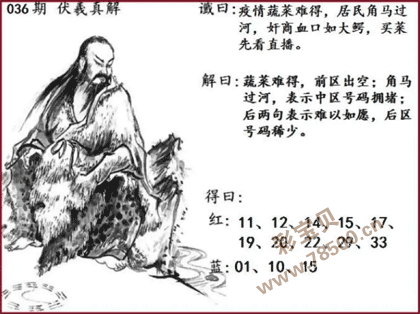 036期 伏羲真解
谶曰：疫情蔬菜难得，居民角马过
河，奸商血口如大鳄，买菜
先看直播。
解曰：蔬菜难得，前区出空；角马
过河，表示中区号码拥堵；
后两句表示难以如愿，后区
号码稀少。
得曰：
红：11、12、14、15、17、
19、20、22、29、33
蓝：01、10、15
彩宝贝
www.78500.cn